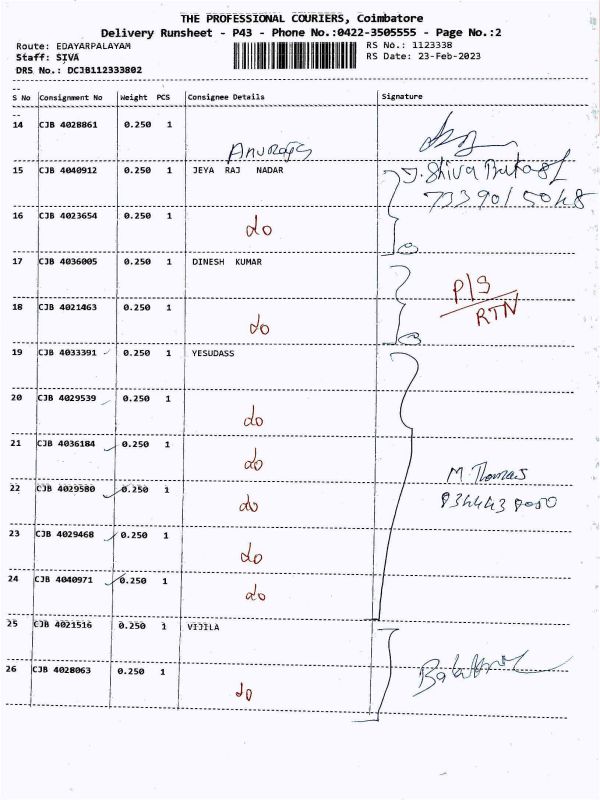 THE PROFESSIONAL COURIERS, Coimbatore
Delivery Runsheet - P43 - Phone No.:0422-3505555 - Page No.:2
Route: EDAYARPALAYAM RS No.: 1123338
Staff: SIVA RS Date: 23-Feb-2023
DRS No.: DCJB112333802
S No Consignment No Weight PCS Consignee Details Signature
14 CJB 4028861 0.250 1
15 CJB 4040912 0.250 1 JEYA RAJ NADAR J. Shiva
16 CJB 4023654 0.250 1 do
17 CJB 4036005 0.250 1 DINESH KUMAR P/S
RTN
18 CJB 4021463 0.250 1 do
19 CJB 4033391 0.250 1 YESUDASS
20 CJB 4029539 0.250 1 do
21 CJB 4036184 0.250 1 do M. Thomas
22 CJB 4029580 0.250 1 do
23 CJB 4029468 0.250 1 do
24 CJB 4040971 0.250 1 do
25 CJB 4021516 0.250 1 VIJILA
26 CJB 4028063 0.250 1 do